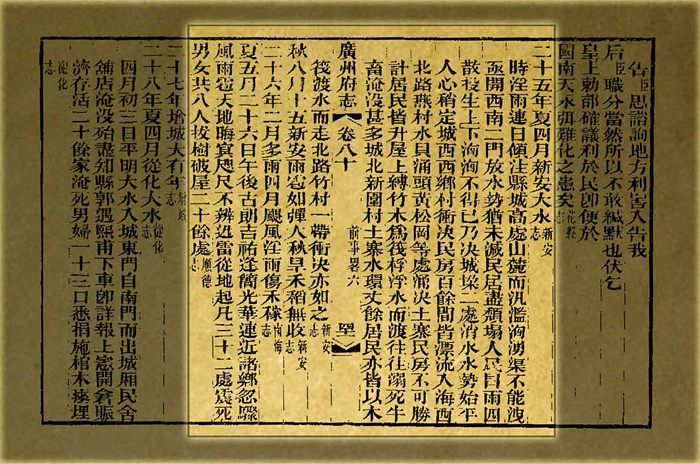 告臣思諮詢地方利害入告我
后臣職分當然所以不敢緘默也伏乞
皇上勅部確議利於民即便於
國南天永弭難化之患矣花縣志
二十五年夏四月新安大水新安志
時淫雨連日傾注縣城高處山麓而汎濫洶湧渠不能洩
亟開西南二門放水勢猶未減民居盡頹塌人民冒雨四
散投生上下洶洶不得已乃決城垜二處消水水勢始平
人心稍定城西西鄉村衝決民房百餘間皆漂流入海西
北路燕村水貝涌頭黃松岡等處決土寨民房不可勝
計居民皆升屋上縛竹木為筏桴浮水而渡往往溺死牛
畜淹沒甚多城北新圍村土寨水環丈餘居民亦皆以木
廣州府志 卷八十 前事畧六
筏渡水而走北路竹村一帶衝決亦如之新安志
秋八月十五新安雨雹如彈人秋旱禾稻無收新安志
二十六年二月多雨四月颶風淫雨傷禾稼南海志
夏五月二十六日午後古朗吉祐逢簡光華連近諸鄉忽驟
風雨雹天地晦冥咫尺不辨近雷從地起凡三十二處震死
男女共八人拔樹破屋二十餘處順德志
二十七年增城大有年增城志
二十八年夏四月從化大水從化志
四月初三日平明大水入城東門自南門而出城廂民舍
舖店淹沒殆盡知縣郭遇熙甫下車即詳報上憲開倉賑
濟存活二十餘家淹死男婦一十三口悉捐施棺木瘞埋
從化志